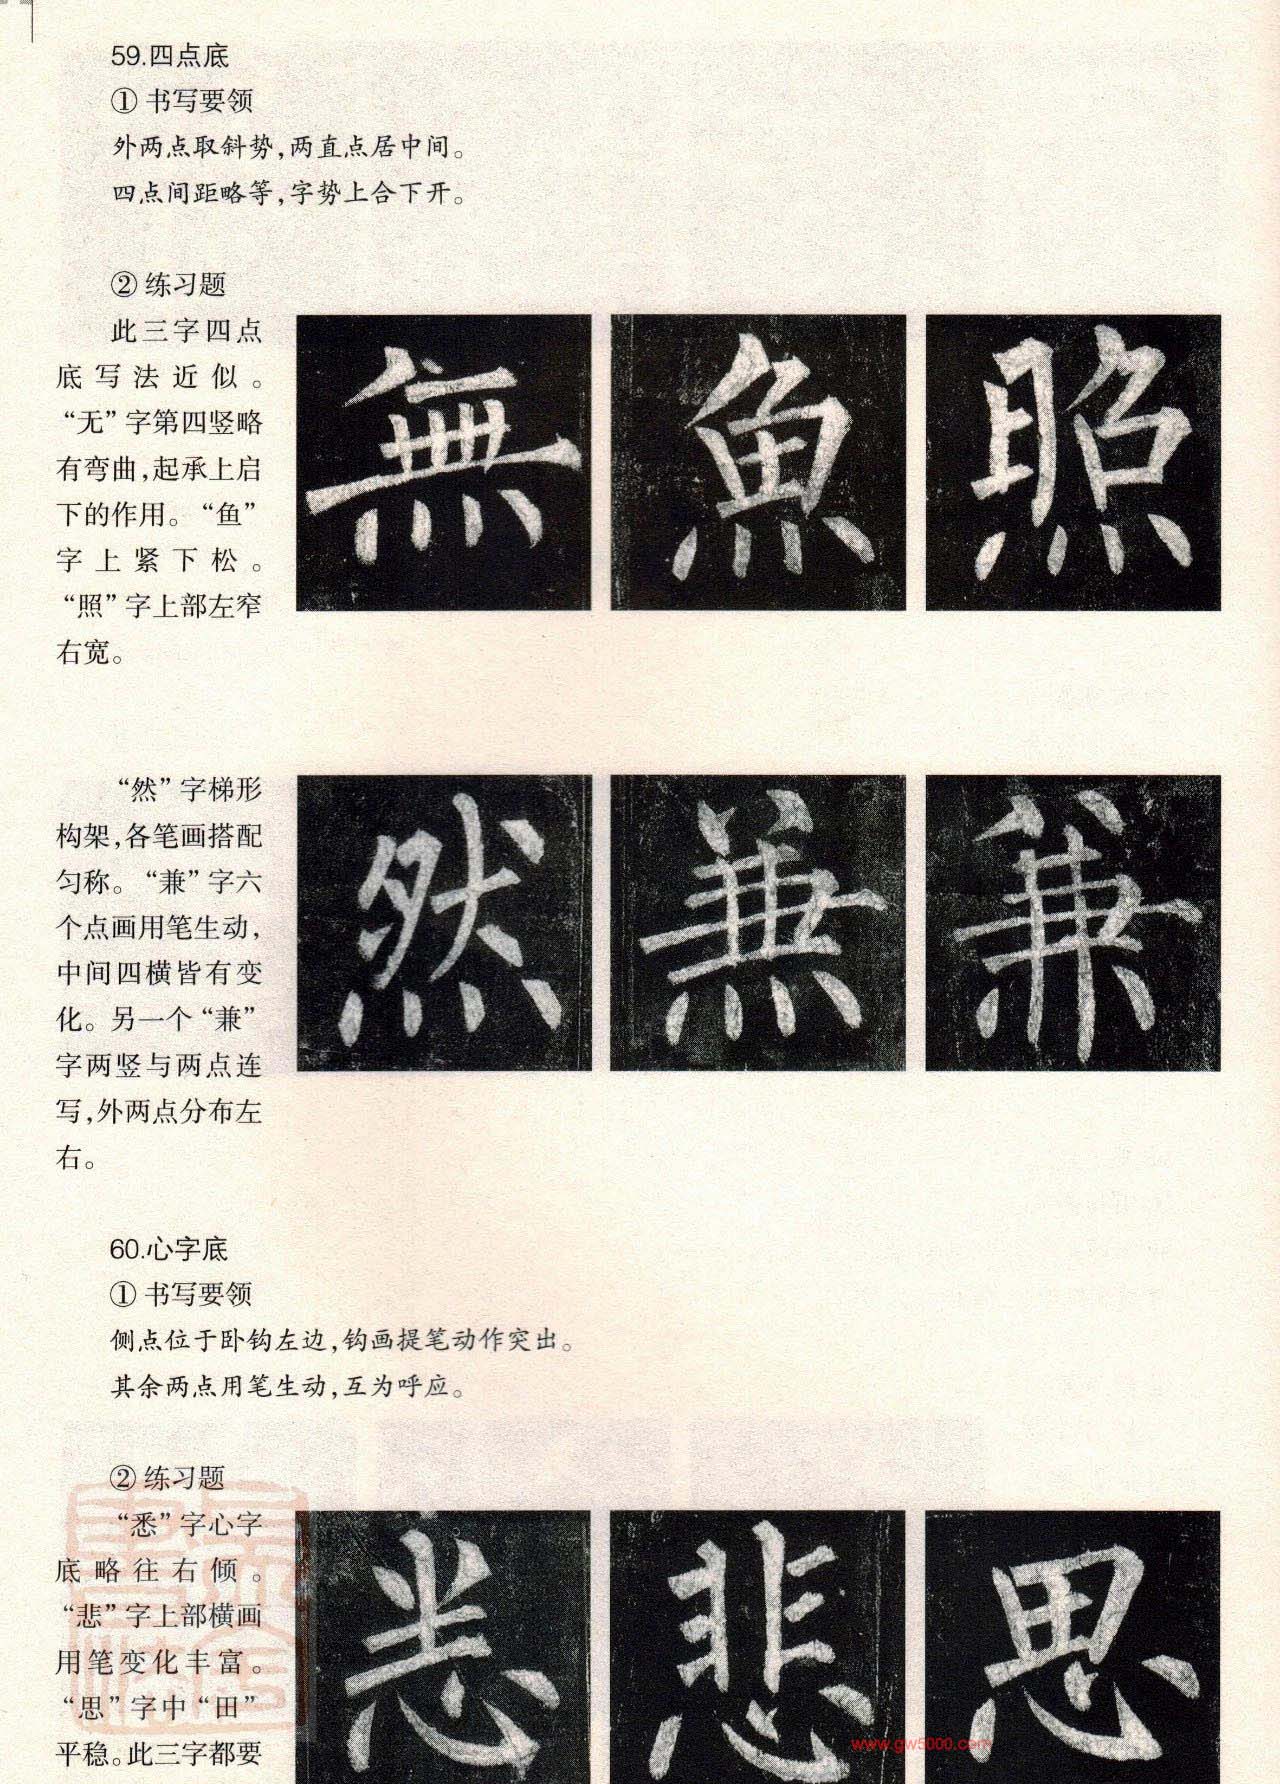 59.四点底
① 书写要领
外两点取斜势,两直点居中间。
四点间距略等,字势上合下开。
② 练习题
此三字四点
底写法近似。
“无”字第四竖略
有弯曲,起承上启
下的作用。“鱼”
字上紧下松。
“照”字上部左窄
右宽。
無 魚 照
“然”字梯形
构架,各笔画搭配
匀称。“兼”字六
个点画用笔生动,
中间四横皆有变
化。另一个“兼”
字两竖与两点连
写,外两点分布左
右。
然 兼 兼
60.心字底
① 书写要领
侧点位于卧钩左边,钩画提笔动作突出。
其余两点用笔生动,互为呼应。
② 练习题
“悉”字心字
底略往右倾。
“悲”字上部横画
用笔变化丰富。
“思”字中“田”
平稳。此三字都要
悉 悲 思
www.gw5000.com